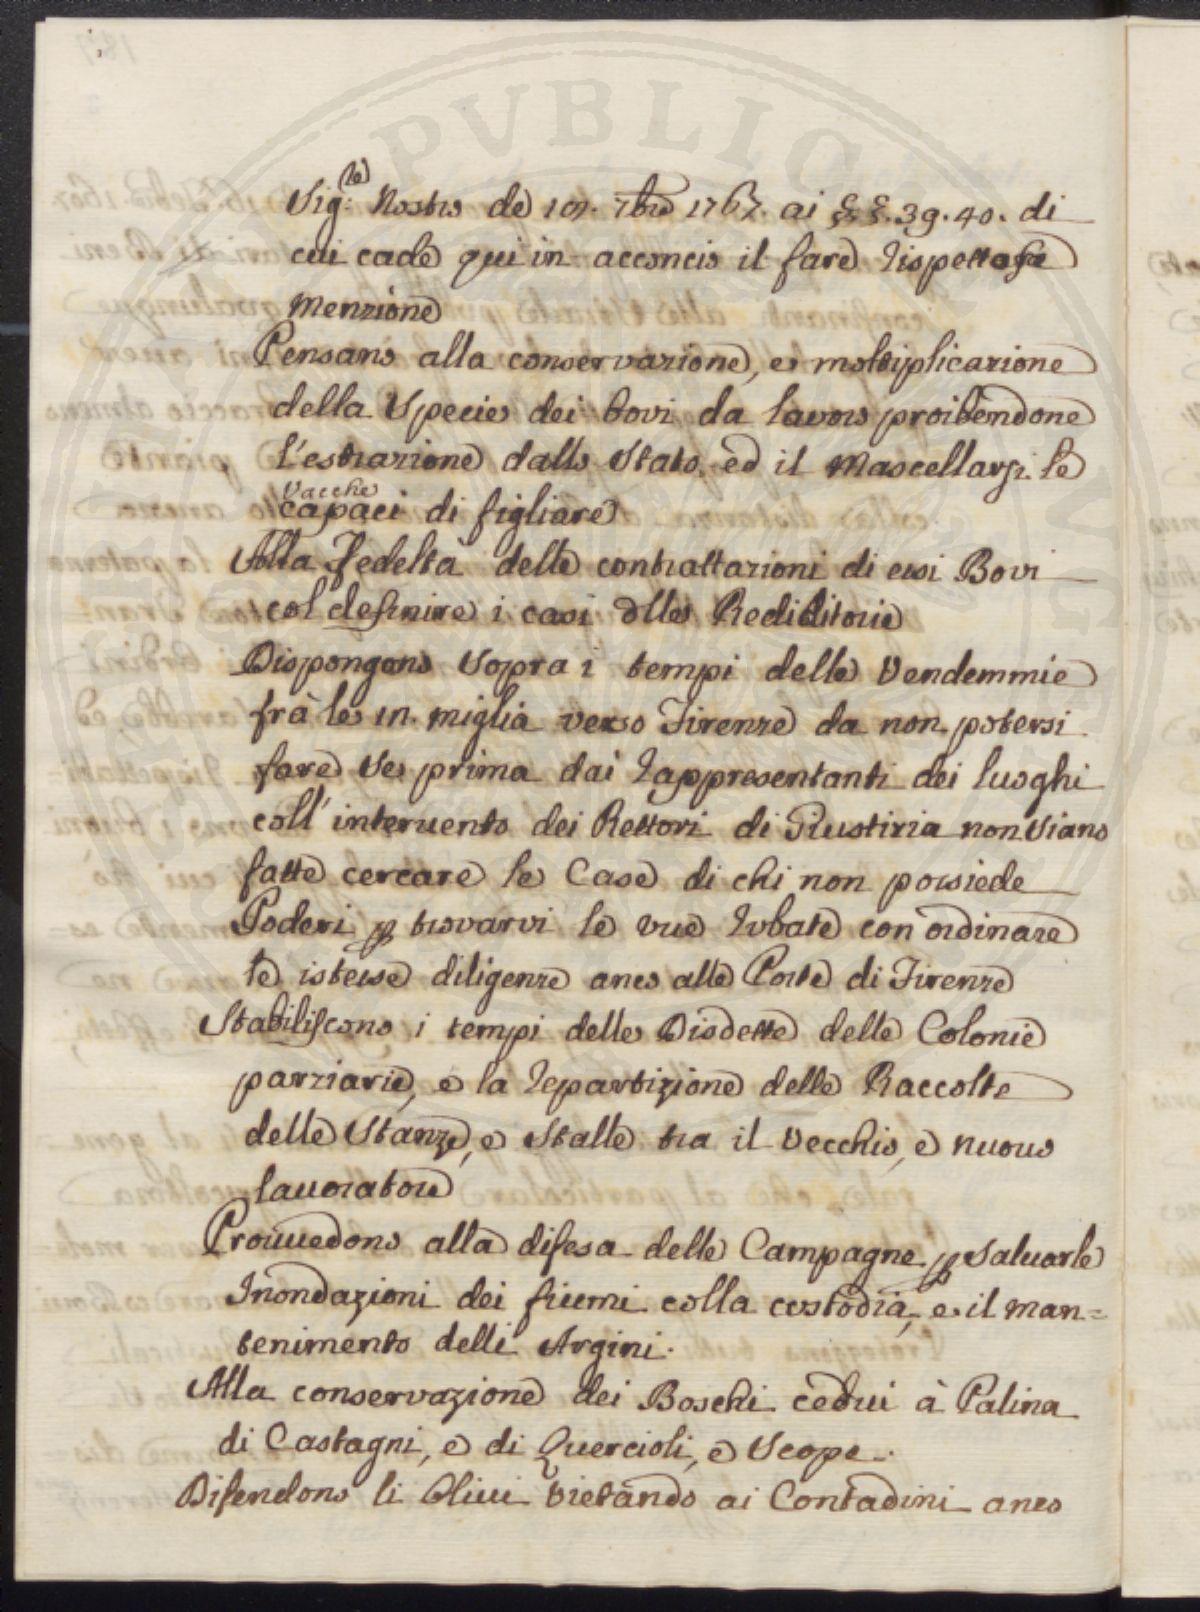 PVBLICA
Sig:(re) Nostro de 10. 7bre 1767. ai §§. 39. 40. di
cui cade qui in acconcio il fare rispettosa
menzione
Pensano alla conservazione, e moltiplicazione
della Specie dei bovi da lavoro proibendone
l'estrazione dallo Stato, ed il Mascellarsi le
vacche
capaci di figliare
Alla Fedeltà delle contrattazioni di essi Bovi
col definire i casi dlle Redibitorie
Dispongono sopra i tempi delle Vendemmie
frà le 10. miglia verso Firenze da non potersi
fare se prima dai rappresentanti dei luoghi
coll'intervento dei Rettori di Giustizia non siano
fatte cercare le Case di chi non possiede
Poderi p trovarvi le vue rubate con ordinare
le istesse diligenze anco alle Porte di Firenze
Stabiliscono i tempi delle Disdette delle Colonie
parziarie, e la repartizione delle Raccolte
delle Stanze, e Stalle tra il Vecchio, e nuovo
lauoratore
Prouuedono alla difesa delle Campagne p saluarle
Inondazioni dei fiumi colla custodia, e il man=
tenimento delli Argini.
Alla conservazione dei Boschi cedui à Palina
di Castagni, e di Quercioli, e Scope.
Difendono li Oliui vietando ai Contadini anco